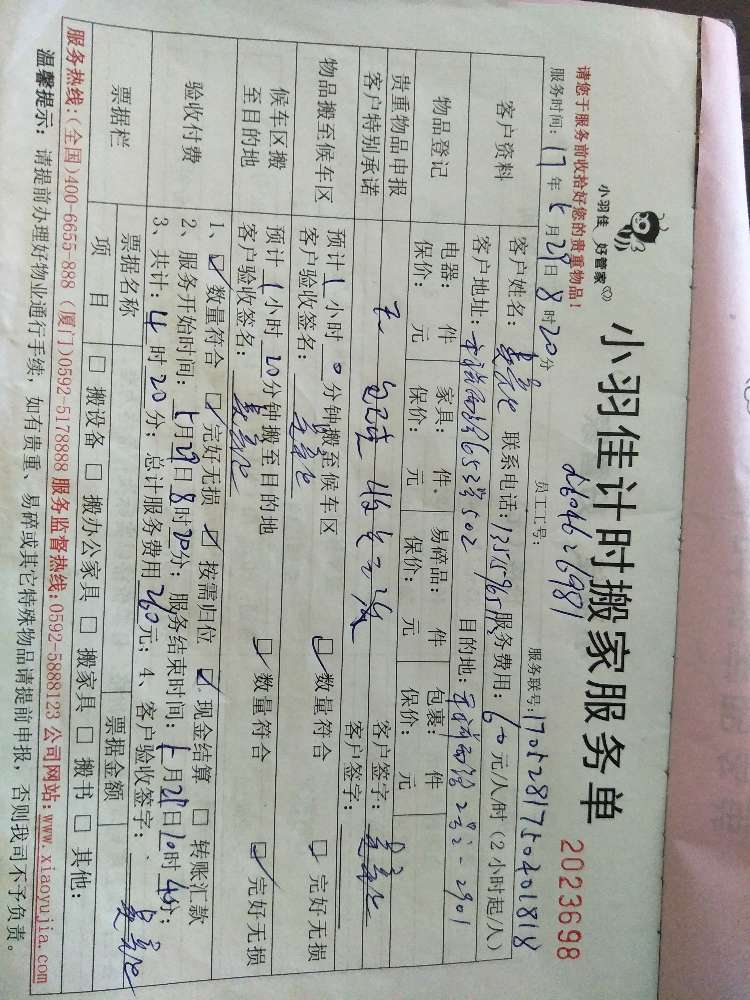 小羽佳 好管家
小羽佳计时搬家服务单
2023698
请您于服务前收拾好您的贵重物品!
服务时间: 17 年 5 月 29 日 8 时 20 分 员工工号: 服务联号: 170528175020181 8
客户资料
客户姓名: 联系电话: 服务费用: 60 元/人/时 (2小时起/人)
客户地址: 目的地:
物品登记
电器: 件 家具: 件 易碎品: 件 包裹: 件
保价: 元 保价: 元 保价: 元 保价: 元
贵重物品申报
无 客户签字:
客户特别承诺
客户签字:
物品搬至候车区
预计 1 小时 0 分钟搬至候车区 ☑ 数量符合 ☑ 完好无损
客户验收签名:
候车区搬至目的地
预计 1 小时 20 分钟搬至目的地 ☑ 数量符合 ☑ 完好无损
客户验收签名:
验收付费
1、☑ 数量符合 ☑ 完好无损 ☑ 按需归位 ☑ 现金结算 □ 转账汇款
2、服务开始时间: 5 月 29 日 8 时 20 分; 服务结束时间: 5 月 29 日 10 时 40 分;
3、共计: 4 时 20 分; 总计服务费用 260 元; 4、客户验收签字:
票据栏
票据名称 票据金额
项 目 □ 搬设备 □ 搬办公家具 □ 搬家具 □ 搬书 □ 其他:
服务热线:(全国)400-6655-888 (厦门)0592-5178888 服务监督热线:0592-5888123 公司网站:www.xiaoyujia.com
温馨提示: 请提前办理好物业通行手续, 如有贵重、易碎或其它特殊物品请提前申报, 否则我司不予负责。